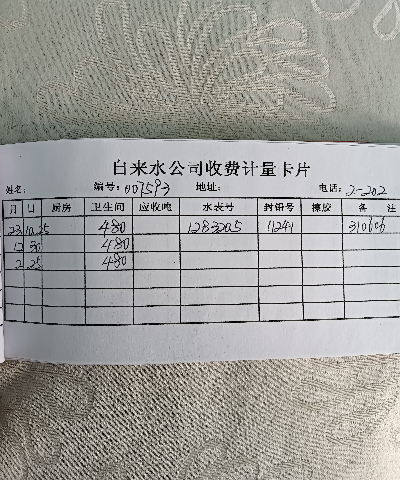 自来水公司收费计量卡片
姓名: 编号: 007593 地址: 电话: 2-202
月 日 厨房 卫生间 应收吨 水表号 封铅号 橡胶 备注
23 10.25 480 1283205 11241 310606
12 30 480
2 25 480